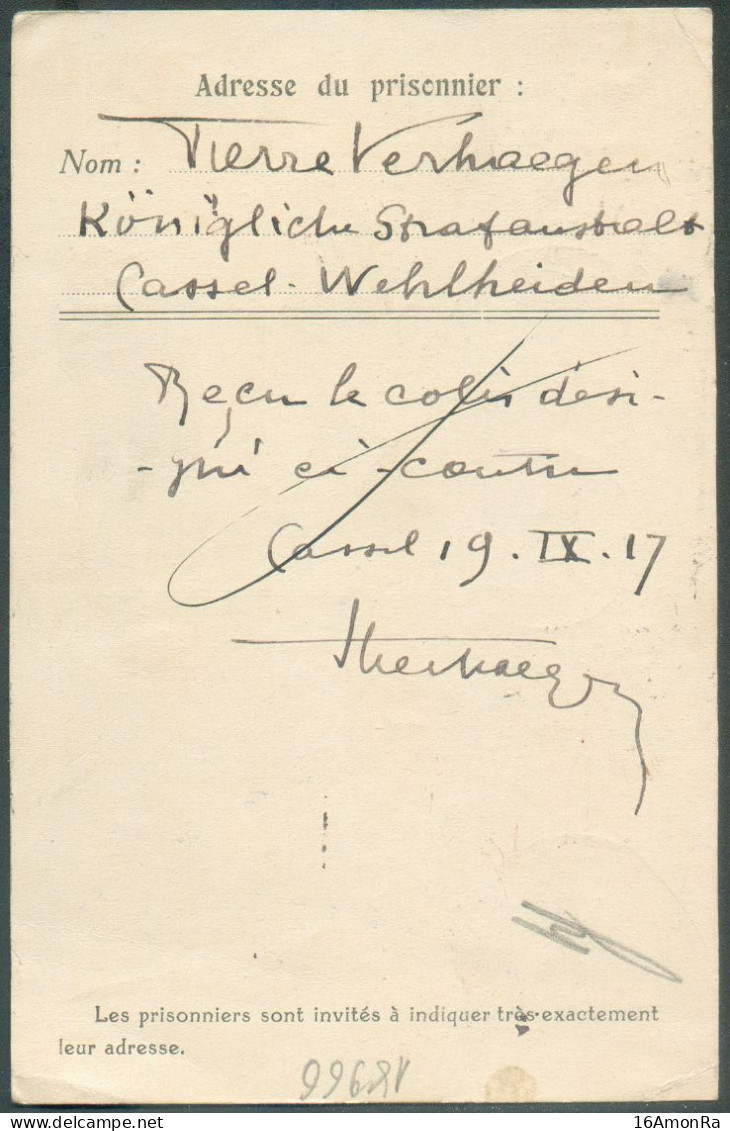 Adresse du prisonnier :
Nom : Pierre Verhaegen
Königliche Strafanstalt
Cassel - Wehlheiden
Reçu le colis dési-
-gné ci-contre
Cassel 19. IX. 17
Verhaegen
Les prisonniers sont invités à indiquer très-exactement
leur adresse.
18966
16AmonRa